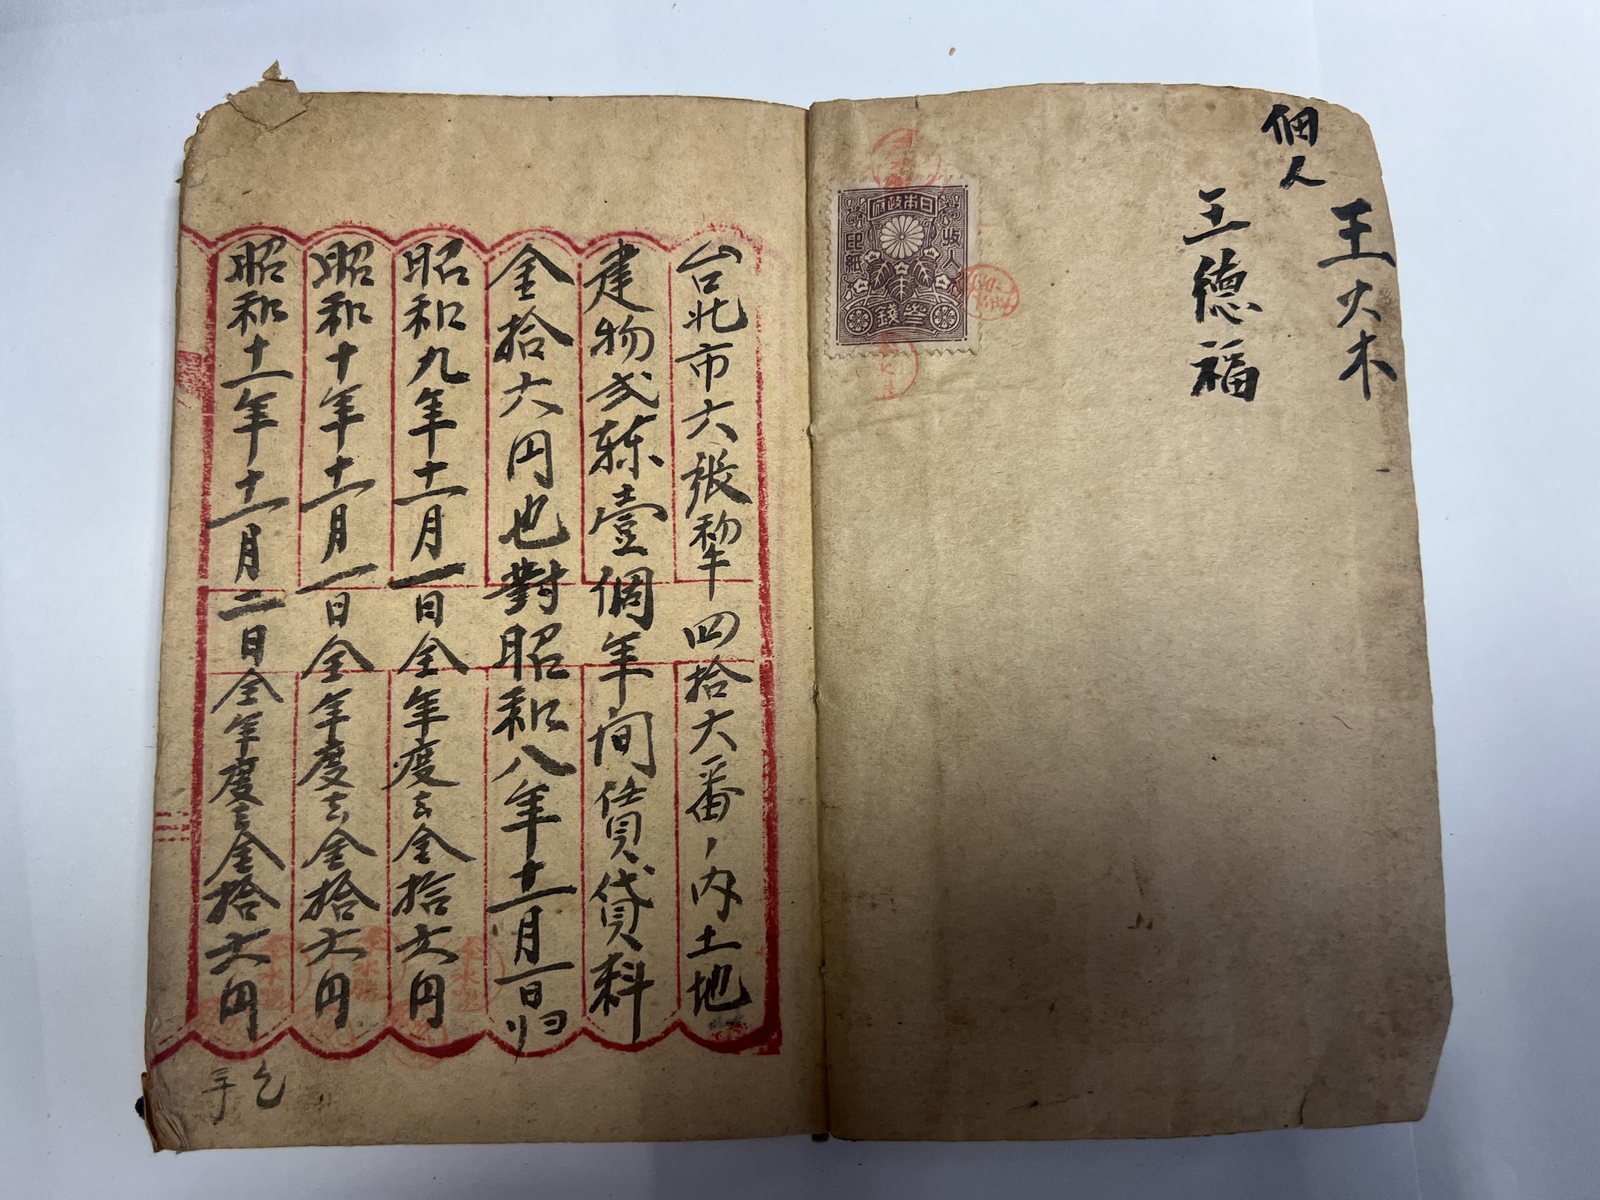 佃人
王火木
王德福
日本政府
收入
印紙
參錢
台北市六張犁四拾六番ノ内土地
建物弍棟壹個年間賃貸料
金拾六円也對昭和八年十一月一日归
昭和九年十一月一日仝年度去金拾六円
昭和十年十一月一日仝年度去金拾六円
昭和十一年十一月二日仝年度去金拾六円